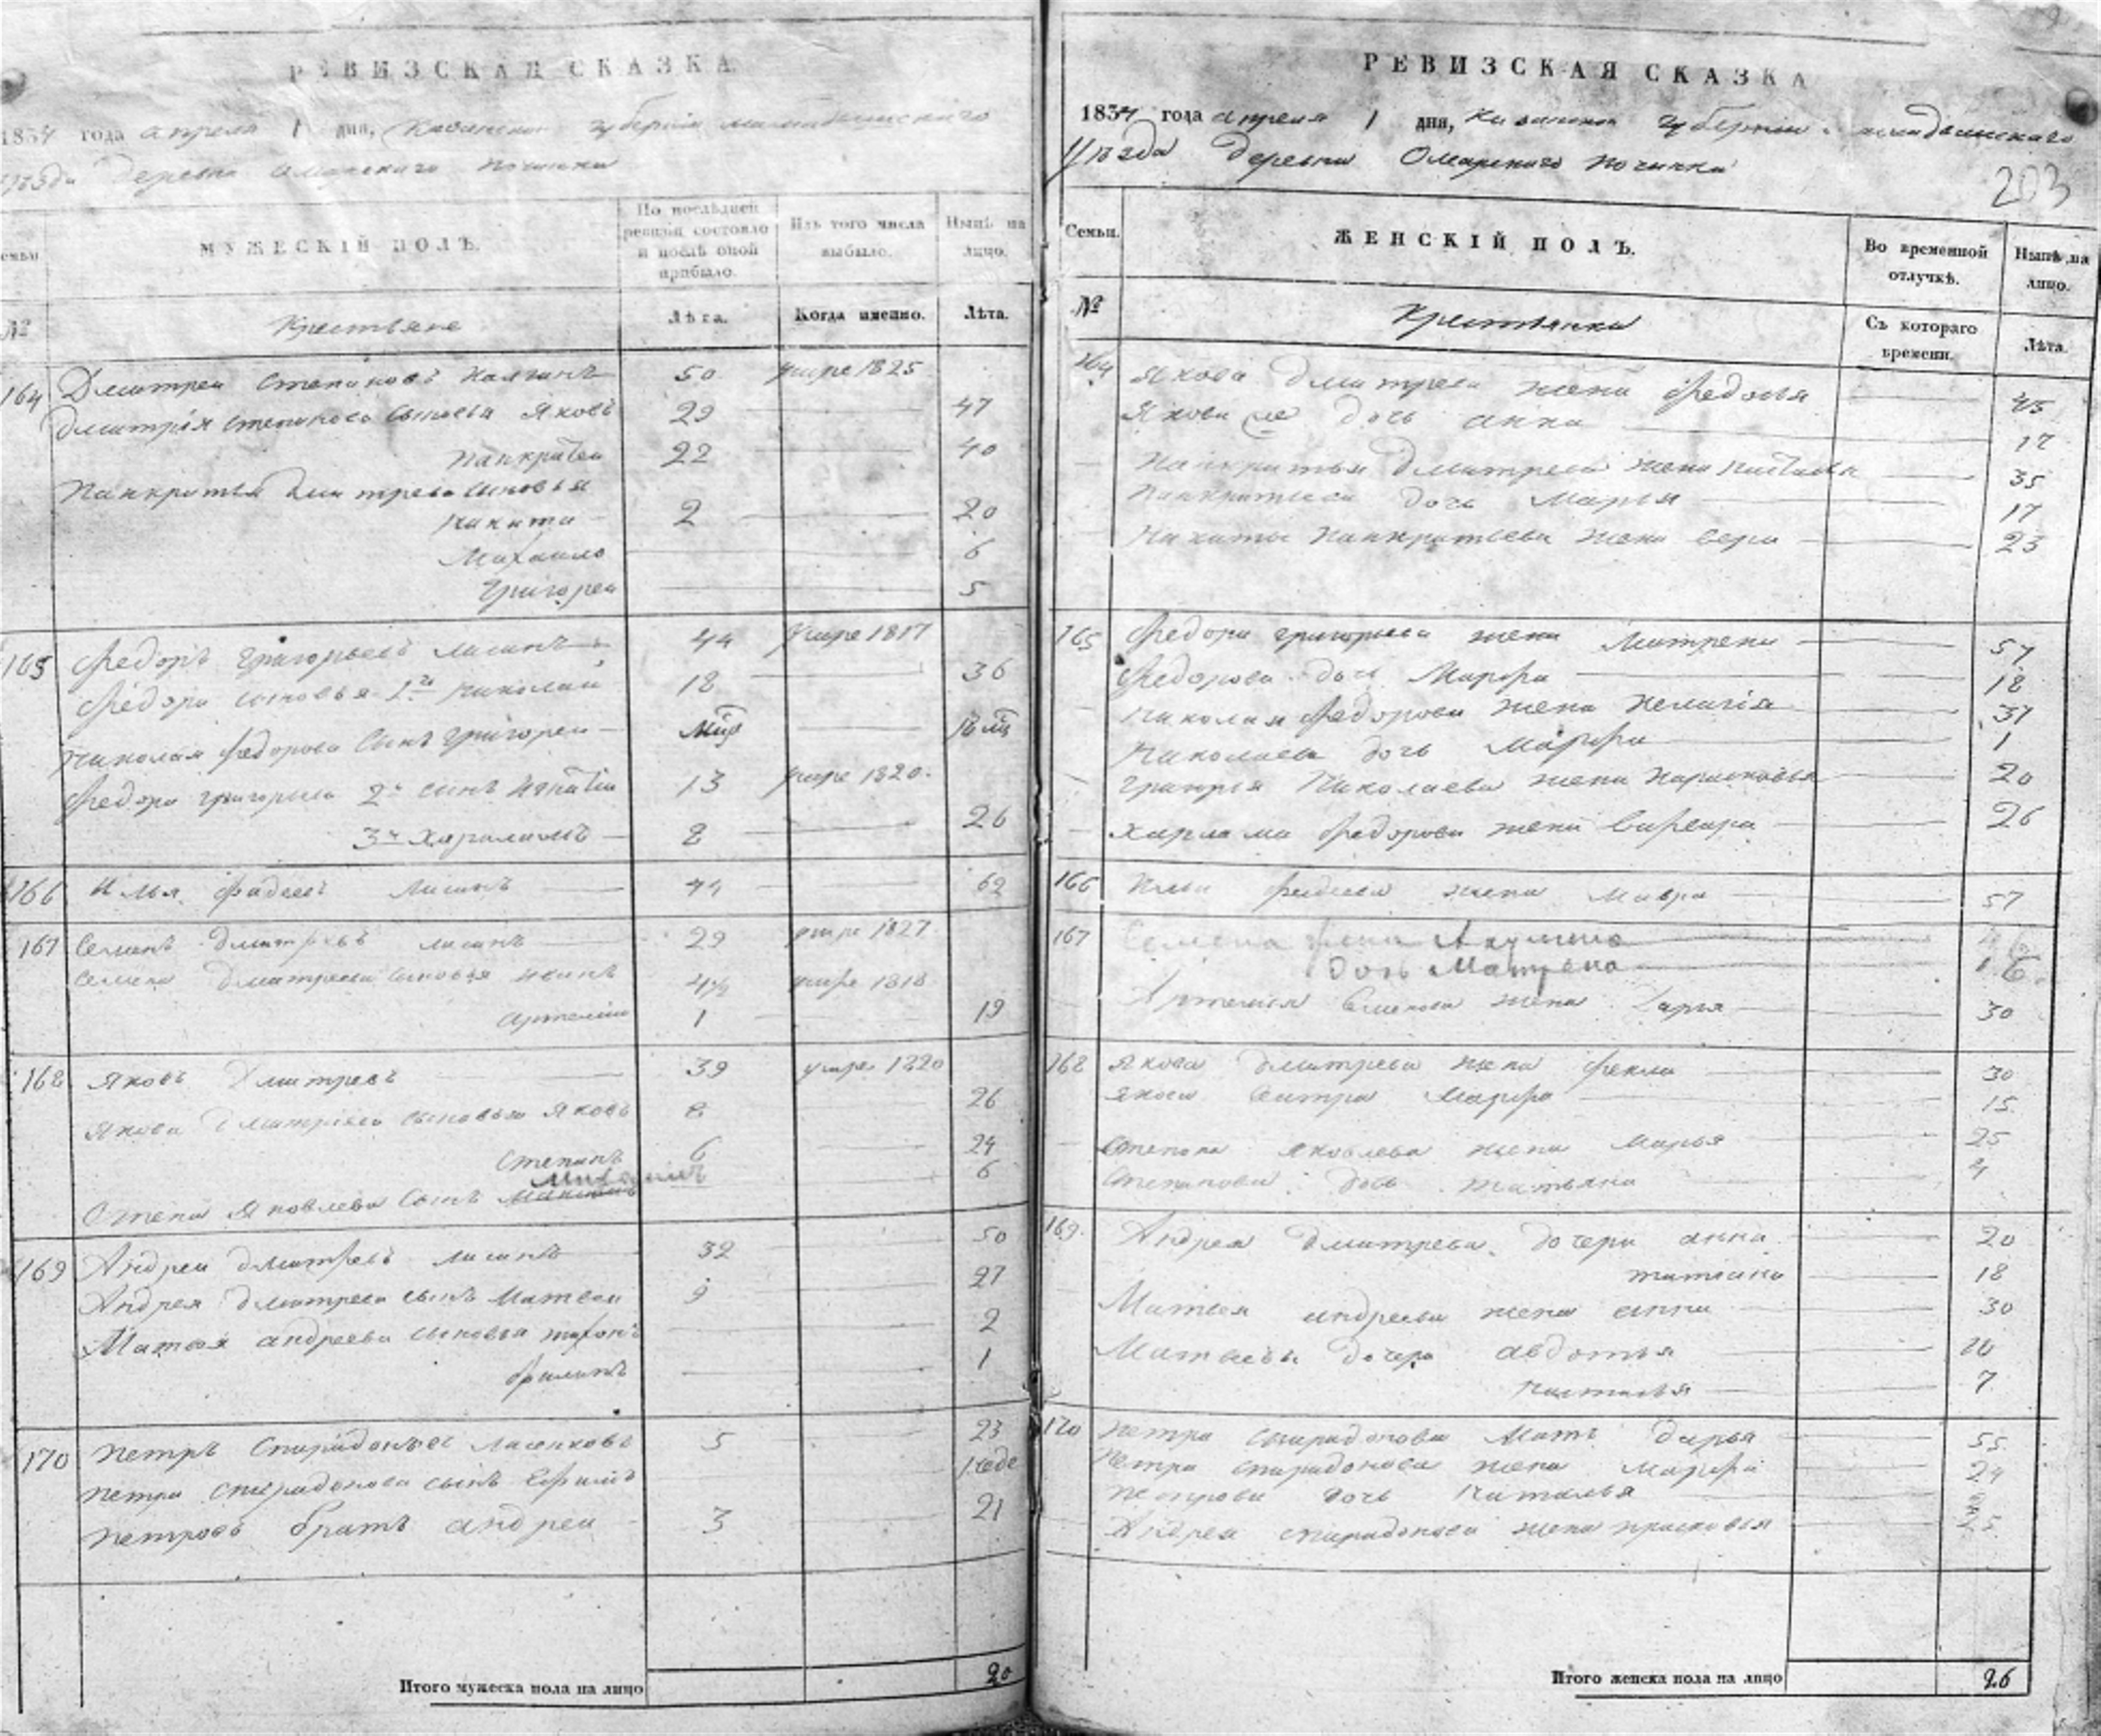 РЕВИЗСКАЯ СКАЗКА
1834 года апреля 1 дня, Казанской губернии мамадышского
уѣзда деревни Омарскаго починка
Семьи
МУЖЕСКІЙ ПОЛЪ.
По послѣдней ревизіи состояло и послѣ оной прибыло.
Изъ того числа выбыло.
Нынѣ на лицо.
№
Крестьяне
Лѣта.
Когда именно.
Лѣта.
164 Дмитреи Степановъ 50 умре 1825
Дмитрія степанова сыновья Яковъ 29 47
Панкратеи 22 40
Панкратья дмитрева сыновья
Никита 2 20
Михаило 6
Григореи 5
165 Федоръ Григорьевъ лисинъ 44 умре 1817
Федора сыновья 1й Николай 18 36
Николая Федорова сынъ Григореи
Федора григорьева 2й сынъ Игнатеи 13 умре 1820.
3й Харламъ 8 26
166 Илья фадеевъ лисинъ 44 62
167 Семенъ дмитревъ лисинъ 29 умре 1827
Семена дмитрева сыновья 4½ умре 1818
Артемии 1 19
168 Яковъ Дмитревъ 39 умре 1820
Якова Дмитрева сыновья Яковъ 8 26
Степанъ 6 24
Степана Яковлева сынъ 6
169 Андреи дмитревъ лисинъ 32 50
Андрея дмитрева сынъ Матвеи 9 27
Матвея андреева сыновья тихонъ 2
филипъ 1
170 Петръ Спиридоновъ 5 23
Петра спиридонова сынъ Ефимъ 1 неде
Петровъ братъ андреи 3 21
Итого мужеска пола на лицо 20
РЕВИЗСКАЯ СКАЗКА
1834 года апреля 1 дня, Казанской губернии мамадышскаго
уѣзда деревни Омарскаго починка
203
Семьи.
ЖЕНСКІЙ ПОЛЪ.
Во временной отлучкѣ.
Нынѣ на лицо.
№
Крестьянки
Съ котораго времени.
Лѣта.
164 Якова Дмитрева жена Федосья 45
Якова ее дочь анна 17
Панкратья Дмитрева жена 35
Панкратьева дочь Марья 17
Никиты Панкратьева жена вера 23
165 Федора григорьева жена Матрена 57
Федорова дочь Марфа 18
Николая федорова жена Пелагія 37
Николаева дочь Марфа 1
Григорья Николаева жена Парасковья 20
Харлама федорова жена Варвара 26
166 Ильи фадеева жена Мавра 57
167 Семена жена Акулина
дочь Матрена 16
Артемия Семенова жена Дарья 30
168 Якова дмитрева жена фекла 30
Якова сестра Марфа 15
Степана Яковлева жена Марья 25
Степанова дочь татьяна 4
169. Андрея Дмитрева дочери анна 20
татиана 18
Матвея андреева жена анна 30
Матвеевы дочери авдотья 10
наталья 7
170 Петра спиридонова Мать дарья 55
Петра спиридонова жена Марфа 24
Петрова дочь Наталья
Андрея спиридонова жена прасковья
Итого женска пола на лицо 26